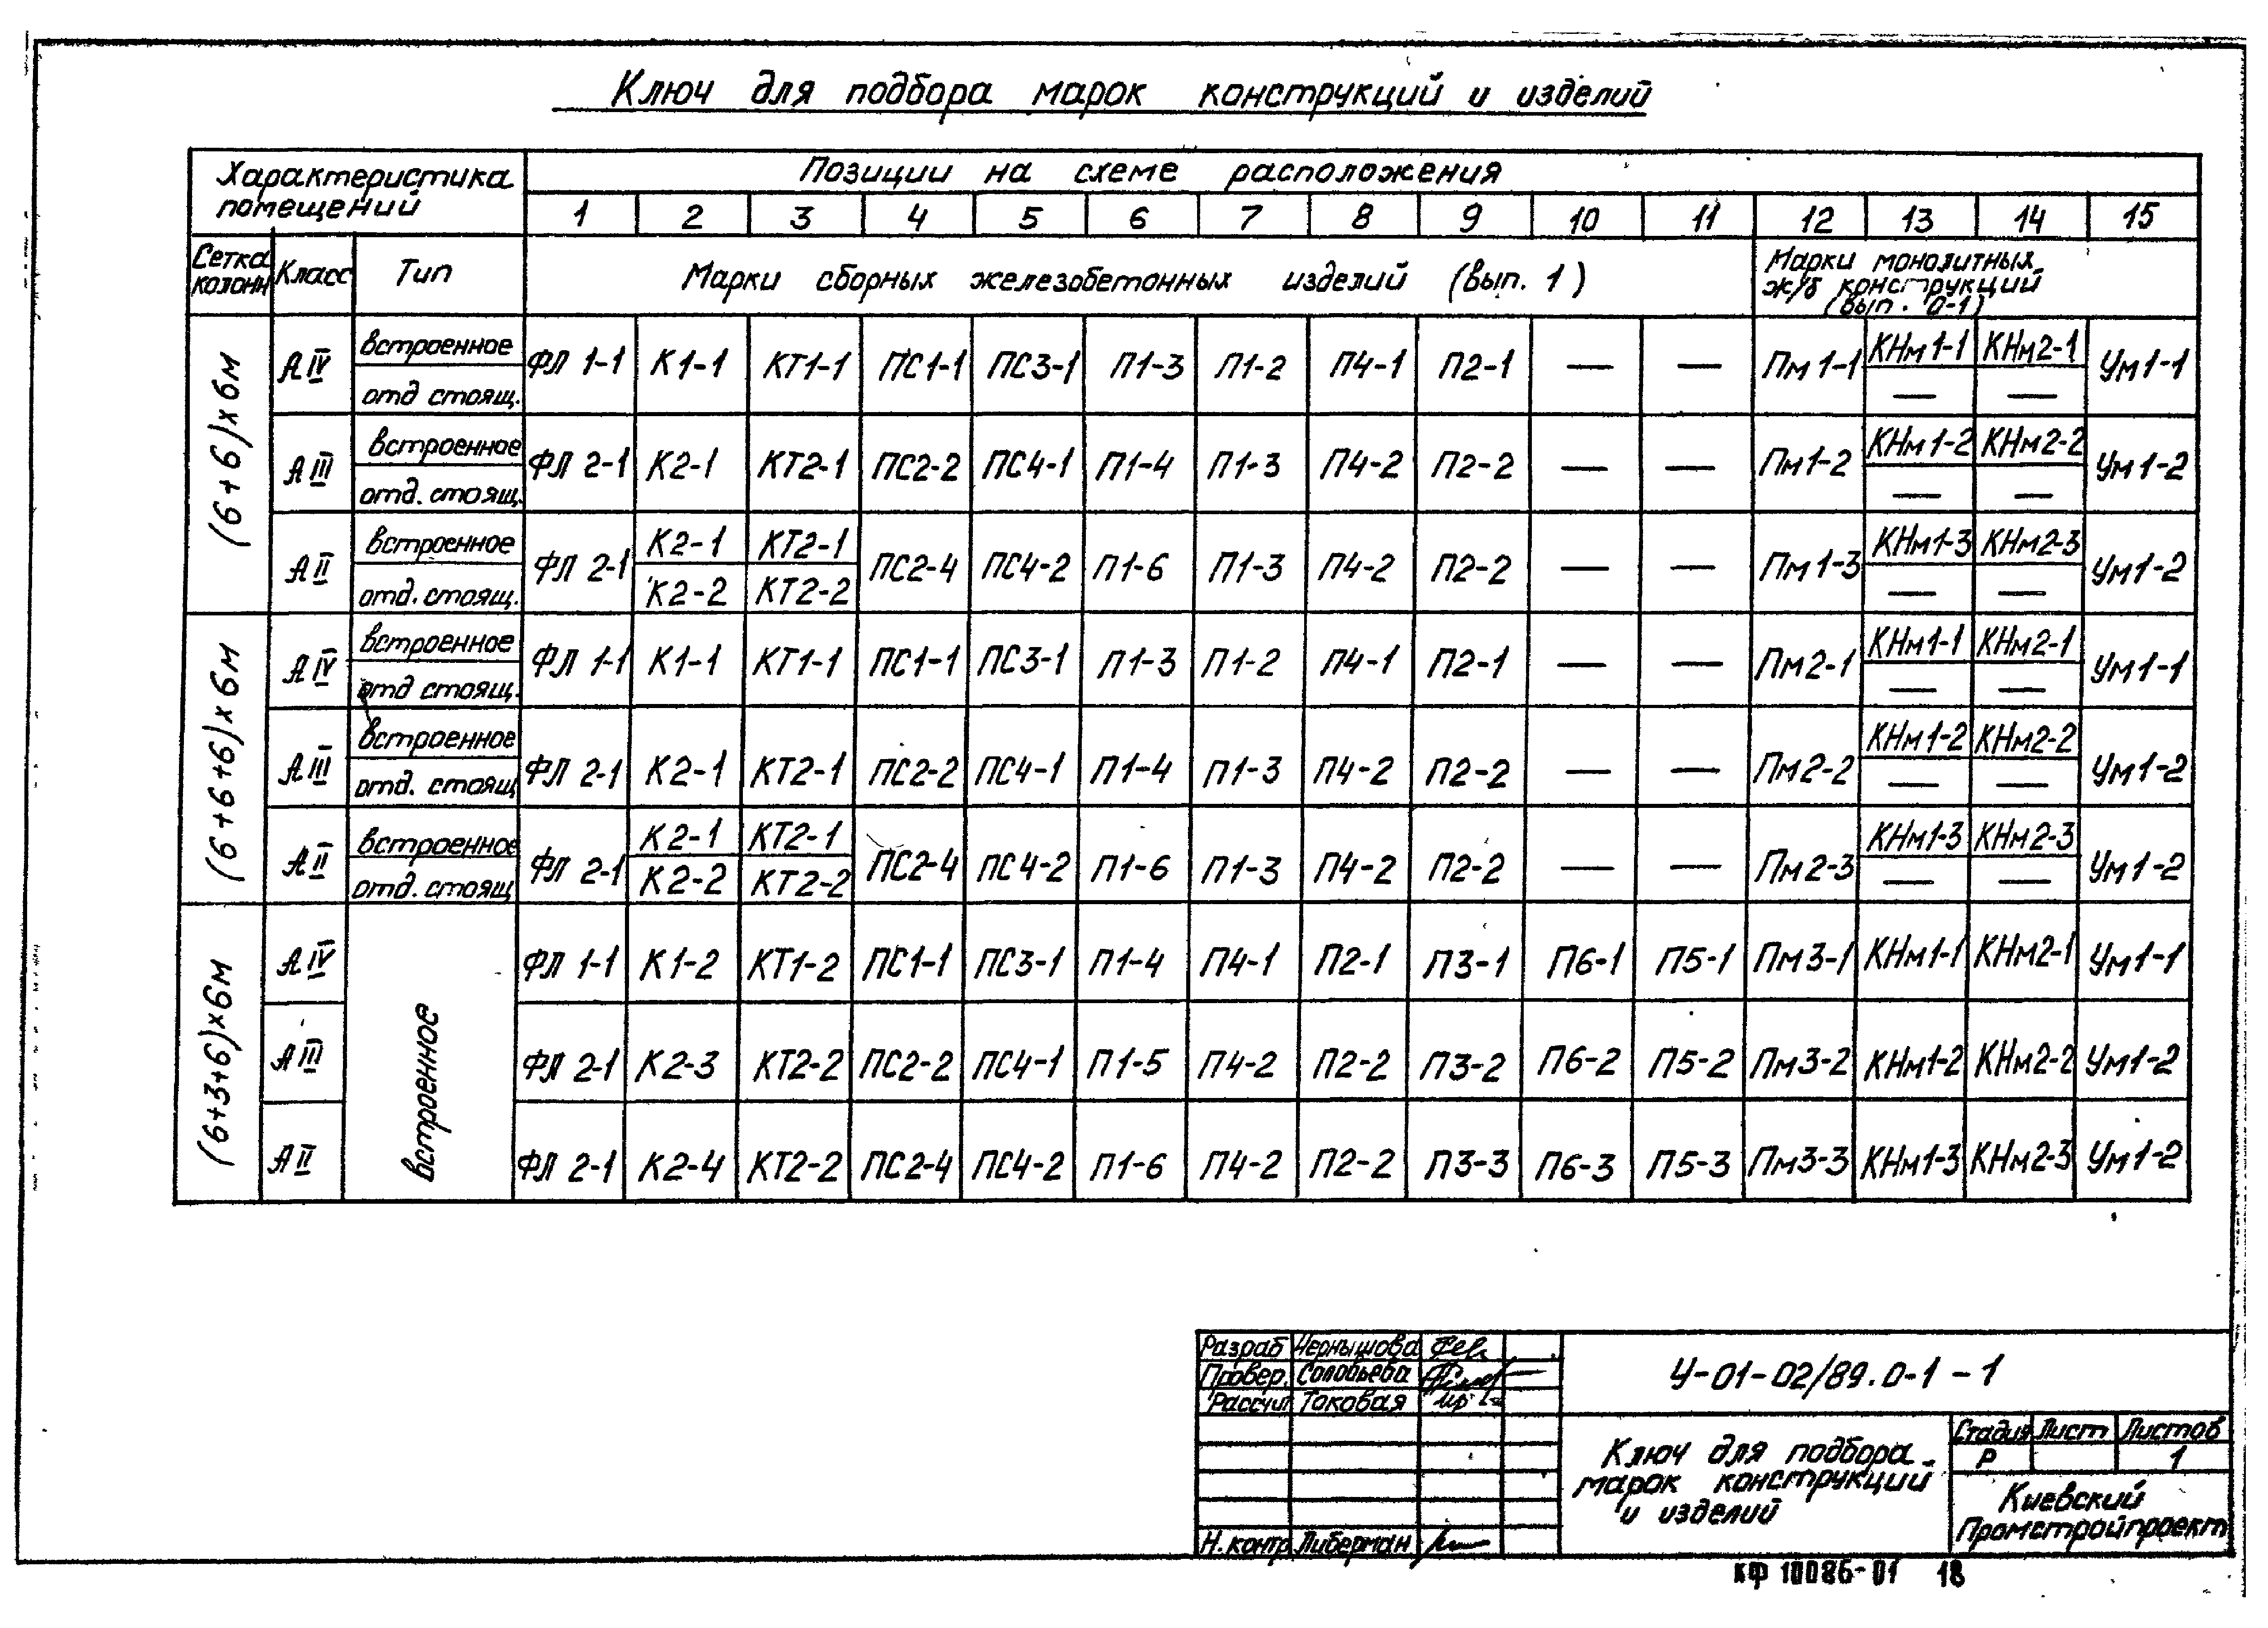 Ключ для подбора марок конструкций и изделий
Характеристика помещений
Позиции на схеме расположения
1 2 3 4 5 6 7 8 9 10 11 12 13 14 15
Сетка колонн Класс Тип Марки сборных железобетонных изделий (вып. 1) Марки монолитных ж/б конструкций (вып. 0-1)
(6+6)х6м
АIV встроенное ФЛ 1-1 К1-1 КТ1-1 ПС1-1 ПС3-1 П1-3 П1-2 П4-1 П2-1 — — Пм1-1 КНм1-1 КНм2-1 Ум1-1
отд стоящ. — —
АIII встроенное ФЛ 2-1 К2-1 КТ2-1 ПС2-2 ПС4-1 П1-4 П1-3 П4-2 П2-2 — — Пм1-2 КНм1-2 КНм2-2 Ум1-2
отд. стоящ. — —
АII встроенное ФЛ 2-1 К2-1 КТ2-1 ПС2-4 ПС4-2 П1-6 П1-3 П4-2 П2-2 — — Пм1-3 КНм1-3 КНм2-3 Ум1-2
отд. стоящ. К2-2 КТ2-2 — —
(6+6+6)х6м
АIV встроенное ФЛ 1-1 К1-1 КТ1-1 ПС1-1 ПС3-1 П1-3 П1-2 П4-1 П2-1 — — Пм2-1 КНм1-1 КНм2-1 Ум1-1
отд стоящ. — —
АIII встроенное ФЛ 2-1 К2-1 КТ2-1 ПС2-2 ПС4-1 П1-4 П1-3 П4-2 П2-2 — — Пм2-2 КНм1-2 КНм2-2 Ум1-2
отд. стоящ — —
АII встроенное ФЛ 2-1 К2-1 КТ2-1 ПС2-4 ПС4-2 П1-6 П1-3 П4-2 П2-2 — — Пм2-3 КНм1-3 КНм2-3 Ум1-2
отд. стоящ К2-2 КТ2-2 — —
(6+3+6)х6м
встроенное
АIV ФЛ 1-1 К1-2 КТ1-2 ПС1-1 ПС3-1 П1-4 П4-1 П2-1 П3-1 П6-1 П5-1 Пм3-1 КНм1-1 КНм2-1 Ум1-1
АIII ФЛ 2-1 К2-3 КТ2-2 ПС2-2 ПС4-1 П1-5 П4-2 П2-2 П3-2 П6-2 П5-2 Пм3-2 КНм1-2 КНм2-2 Ум1-2
АII ФЛ 2-1 К2-4 КТ2-2 ПС2-4 ПС4-2 П1-6 П4-2 П2-2 П3-3 П6-3 П5-3 Пм3-3 КНм1-3 КНм2-3 Ум1-2
Разраб Чернышова
Провер. Соловьева
Рассчит Токовая
Н. контр Либерман
У-01-02/89.0-1-1
Ключ для подбора
марок конструкций
и изделий
Стадия Лист Листов
Р 1
Киевский
Промстройпроект
КФ 10086-01 18